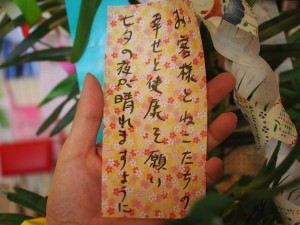 お客様とねこたちの
幸せと健康を願い
七夕の夜、晴れますように